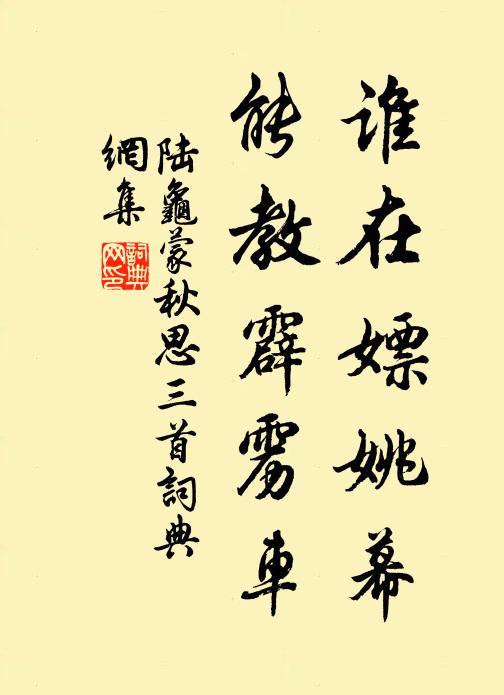 誰在嫖姚幕
能教霹雳車
陆龜蒙秋思三首詞典
網集
詞典
网印